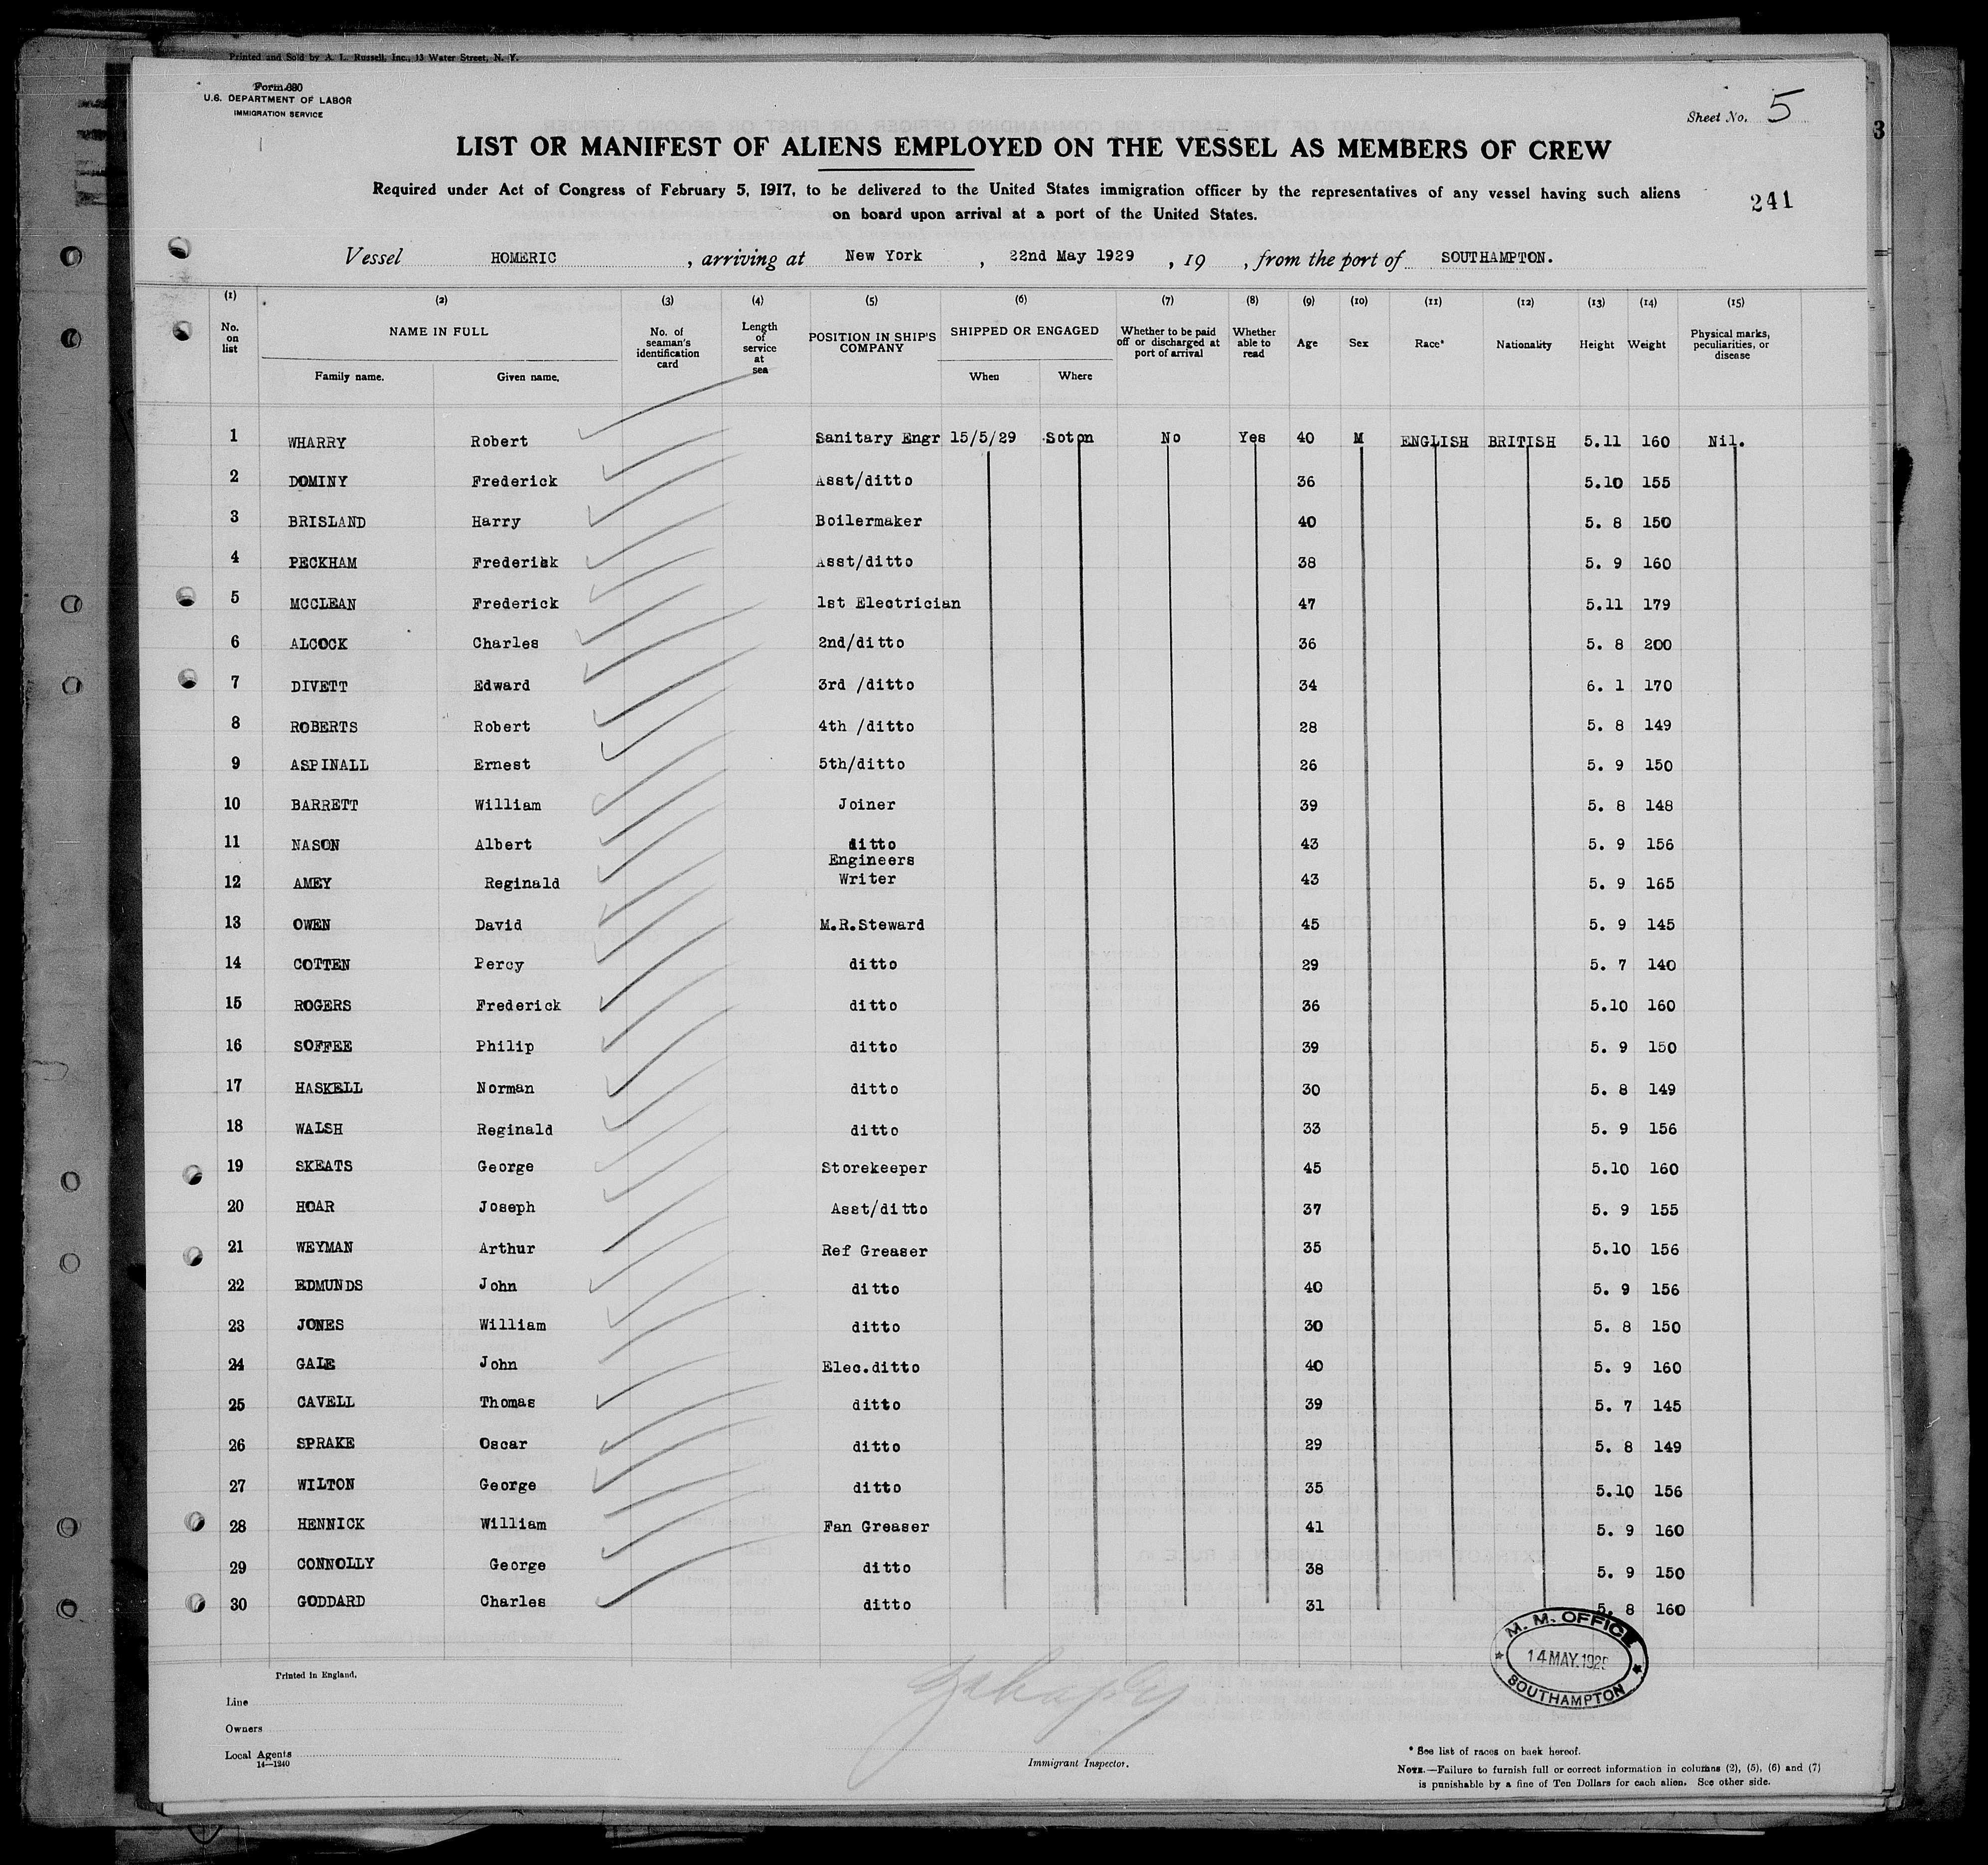 Printed and Sold by A. L. Russell, Inc., 13 Water Street, N. Y.
Form 680
U.S. DEPARTMENT OF LABOR
IMMIGRATION SERVICE
Sheet No. 5
3
LIST OR MANIFEST OF ALIENS EMPLOYED ON THE VESSEL AS MEMBERS OF CREW
Required under Act of Congress of February 5, 1917, to be delivered to the United States immigration officer by the representatives of any vessel having such aliens
on board upon arrival at a port of the United States.
241
Vessel HOMERIC , arriving at New York , 22nd May 1929 , 19 , from the port of SOUTHAMPTON.
(1) (2) (3) (4) (5) (6) (7) (8) (9) (10) (11) (12) (13) (14) (15)
No. on list NAME IN FULL Family name. Given name. No. of seaman's identification card Length of service at sea POSITION IN SHIP'S COMPANY SHIPPED OR ENGAGED When Where Whether to be paid off or discharged at port of arrival Whether able to read Age Sex Race* Nationality Height Weight Physical marks, peculiarities, or disease
1 WHARRY Robert Sanitary Engr 15/5/29 Soton No Yes 40 M ENGLISH BRITISH 5.11 160 Nil.
2 DOMINY Frederick Asst/ditto 36 5.10 155
3 BRISLAND Harry Boilermaker 40 5. 8 150
4 PECKHAM Frederick Asst/ditto 38 5. 9 160
5 MCCLEAN Frederick 1st Electrician 47 5.11 179
6 ALCOCK Charles 2nd/ditto 36 5. 8 200
7 DIVETT Edward 3rd /ditto 34 6. 1 170
8 ROBERTS Robert 4th /ditto 28 5. 8 149
9 ASPINALL Ernest 5th/ditto 26 5. 9 150
10 BARRETT William Joiner 39 5. 8 148
11 NASON Albert ditto 43 5. 9 156
12 AMEY Reginald Engineers Writer 43 5. 9 165
13 OWEN David M.R.Steward 45 5. 9 145
14 COTTEN Percy ditto 29 5. 7 140
15 ROGERS Frederick ditto 36 5.10 160
16 SOFFEE Philip ditto 39 5. 9 150
17 HASKELL Norman ditto 30 5. 8 149
18 WALSH Reginald ditto 33 5. 9 156
19 SKEATS George Storekeeper 45 5.10 160
20 HOAR Joseph Asst/ditto 37 5. 9 155
21 WEYMAN Arthur Ref Greaser 35 5.10 156
22 EDMUNDS John ditto 40 5. 9 156
23 JONES William ditto 30 5. 8 150
24 GALE John Elec.ditto 40 5. 9 160
25 CAVELL Thomas ditto 39 5. 7 145
26 SPRAKE Oscar ditto 29 5. 8 149
27 WILTON George ditto 35 5.10 156
28 HENNICK William Fan Greaser 41 5. 9 160
29 CONNOLLY George ditto 38 5. 9 150
30 GODDARD Charles ditto 31 5. 8 160
M. M. OFFICE
14 MAY.1929
SOUTHAMPTON
Printed in England.
Line
Owners
Local Agents
14—1240
Immigrant Inspector.
* See list of races on back hereof.
NOTE.—Failure to furnish full or correct information in columns (2), (5), (6) and (7)
is punishable by a fine of Ten Dollars for each alien. See other side.